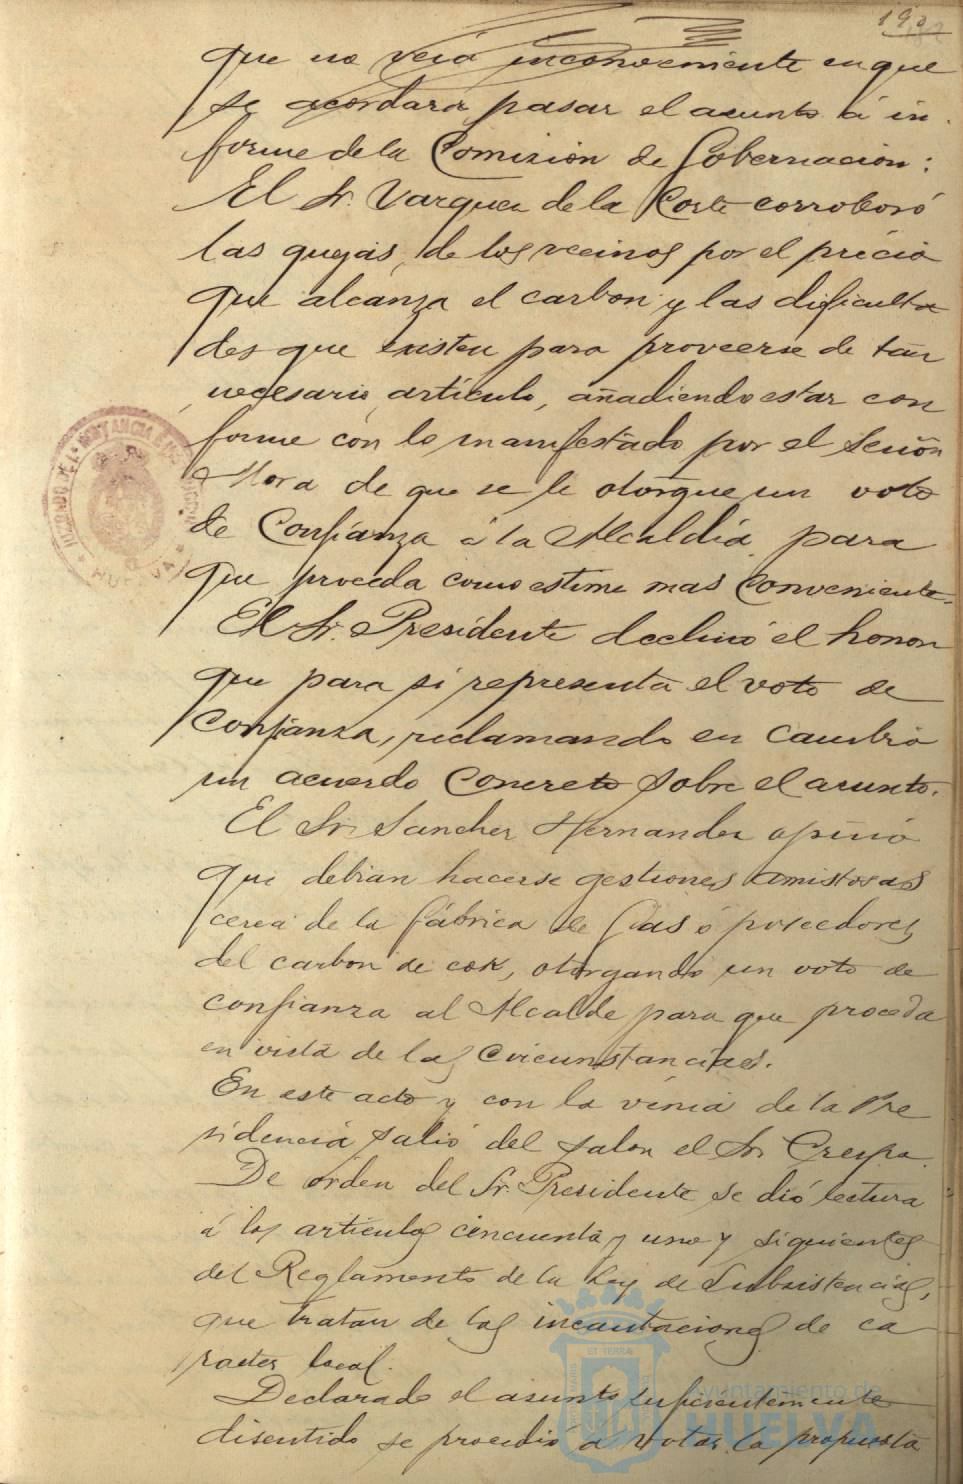 190
que no veia inconveniente en que
se acordara pasar el asunto á in
forme de la Comision de Gobernacion:
El Sr. Varquez de la Corte corroboró
las quejas, de los vecinos por el précio
que alcanza el carbon y las dificulta
des que existen para proveerse de tan
necesario, artículo, añadiendo estar con
forme con lo manifestado por el Señor
Mora de que se le otorgue un voto
de Confianza á la Alcaldia para
que proceda como estime mas Conveniente.
El Sr. Presidente declinó el honor
que para si representa el voto de
Confianza, reclamando en cambio
un acuerdo Concreto sobre el asunto.
El Sr. Sanchez Hernandez opinó
que debian hacerse gestiones amistosas
cerca de la fábrica de Gas ó poseedores
del carbon de cok, otorgando un voto de
confianza al Alcalde para que proceda
en vista de las Circunstancias.
En este acto y con la vénia de la Pre
sidencia salió del salon el Sr. Crespo.
De orden del Sr. Presidente se dió lectura
á los articulos cincuenta y uno y siguientes
del Reglamento de la Ley de Subsistencias,
que tratan de las incautaciones de ca
racter local.
Declarado el asunto suficientemente
discutido se procedió á votar la propuesta
JUZGADO DE 1ª INSTANCIA É INSTRUCCION
HUELVA
Ayuntamiento de
HUELVA